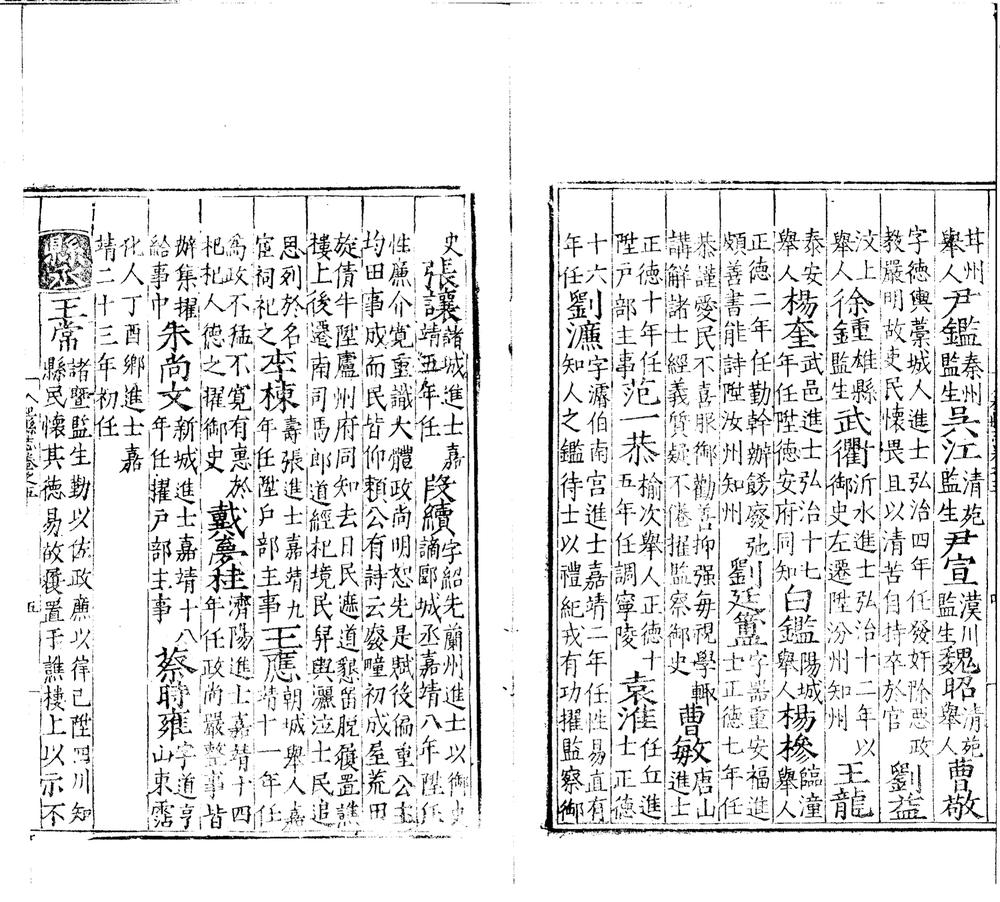 州舉人尹鑑秦州監生吳江清苑監生尹宣漢川監生魏昭清苑舉人曹敬
字德輿藁城人進士弘治四年任發奸除惡政教嚴明故吏民懷畏且以清苦自持卒於官劉益
汶上舉人徐雄縣監生武衢沂水進士弘治十二年以御史左遷陞汾州知州王龍
泰安舉人楊奎武邑進士弘治十七年任陞德安府同知白鑑陽城舉人楊槮臨潼舉人
正德二年任勤幹辦飭廢弛頗善書能詩陞汝州知州劉廷簠字器重安福進士正德七年任
恭謹愛民不喜服御勸善抑强每視學輒講解諸士經義質疑不倦擢監察御史曹敏唐山進士
正德十年任陞戶部主事范一恭榆次舉人正德十五年任調寧陵袁淮任丘進士正德
十六年任劉濂字濬伯南宮進士嘉靖二年任性易直有知人之鑑待士以禮紀戎有功擢監察御
史張讓諸城進士嘉靖五年任段續字紹先蘭州進士以御史謫郾城丞嘉靖八年陞任
性廉介寬重識大體政尚明恕先是賦役偏重公主均田事成而民皆仰賴公有詩云廢疃初成屋荒田
旋倩牛陞廬州府同知去日民遮道懇留脫靴置譙樓上後遷南司馬郎道經杞境民舁輿灑泣士民追
思列於名宦祠祀之李棟壽張進士嘉靖九年任陞戶部主事王應朝城舉人嘉靖十一年任
爲政不猛不寬有惠於杞杞人德之擢御史戴夢桂濟陽進士嘉靖十四年任政尚嚴整事皆
辦集擢給事中朱尚文新城進士嘉靖十八年任擢戶部主事蔡時雍字道亨山東霑
化人丁酉鄉進士嘉靖二十三年初任
縣丞王常諸暨監生勤以佐政廉以律己陞四川知縣民懷其德易故靴置于譙樓上以示不